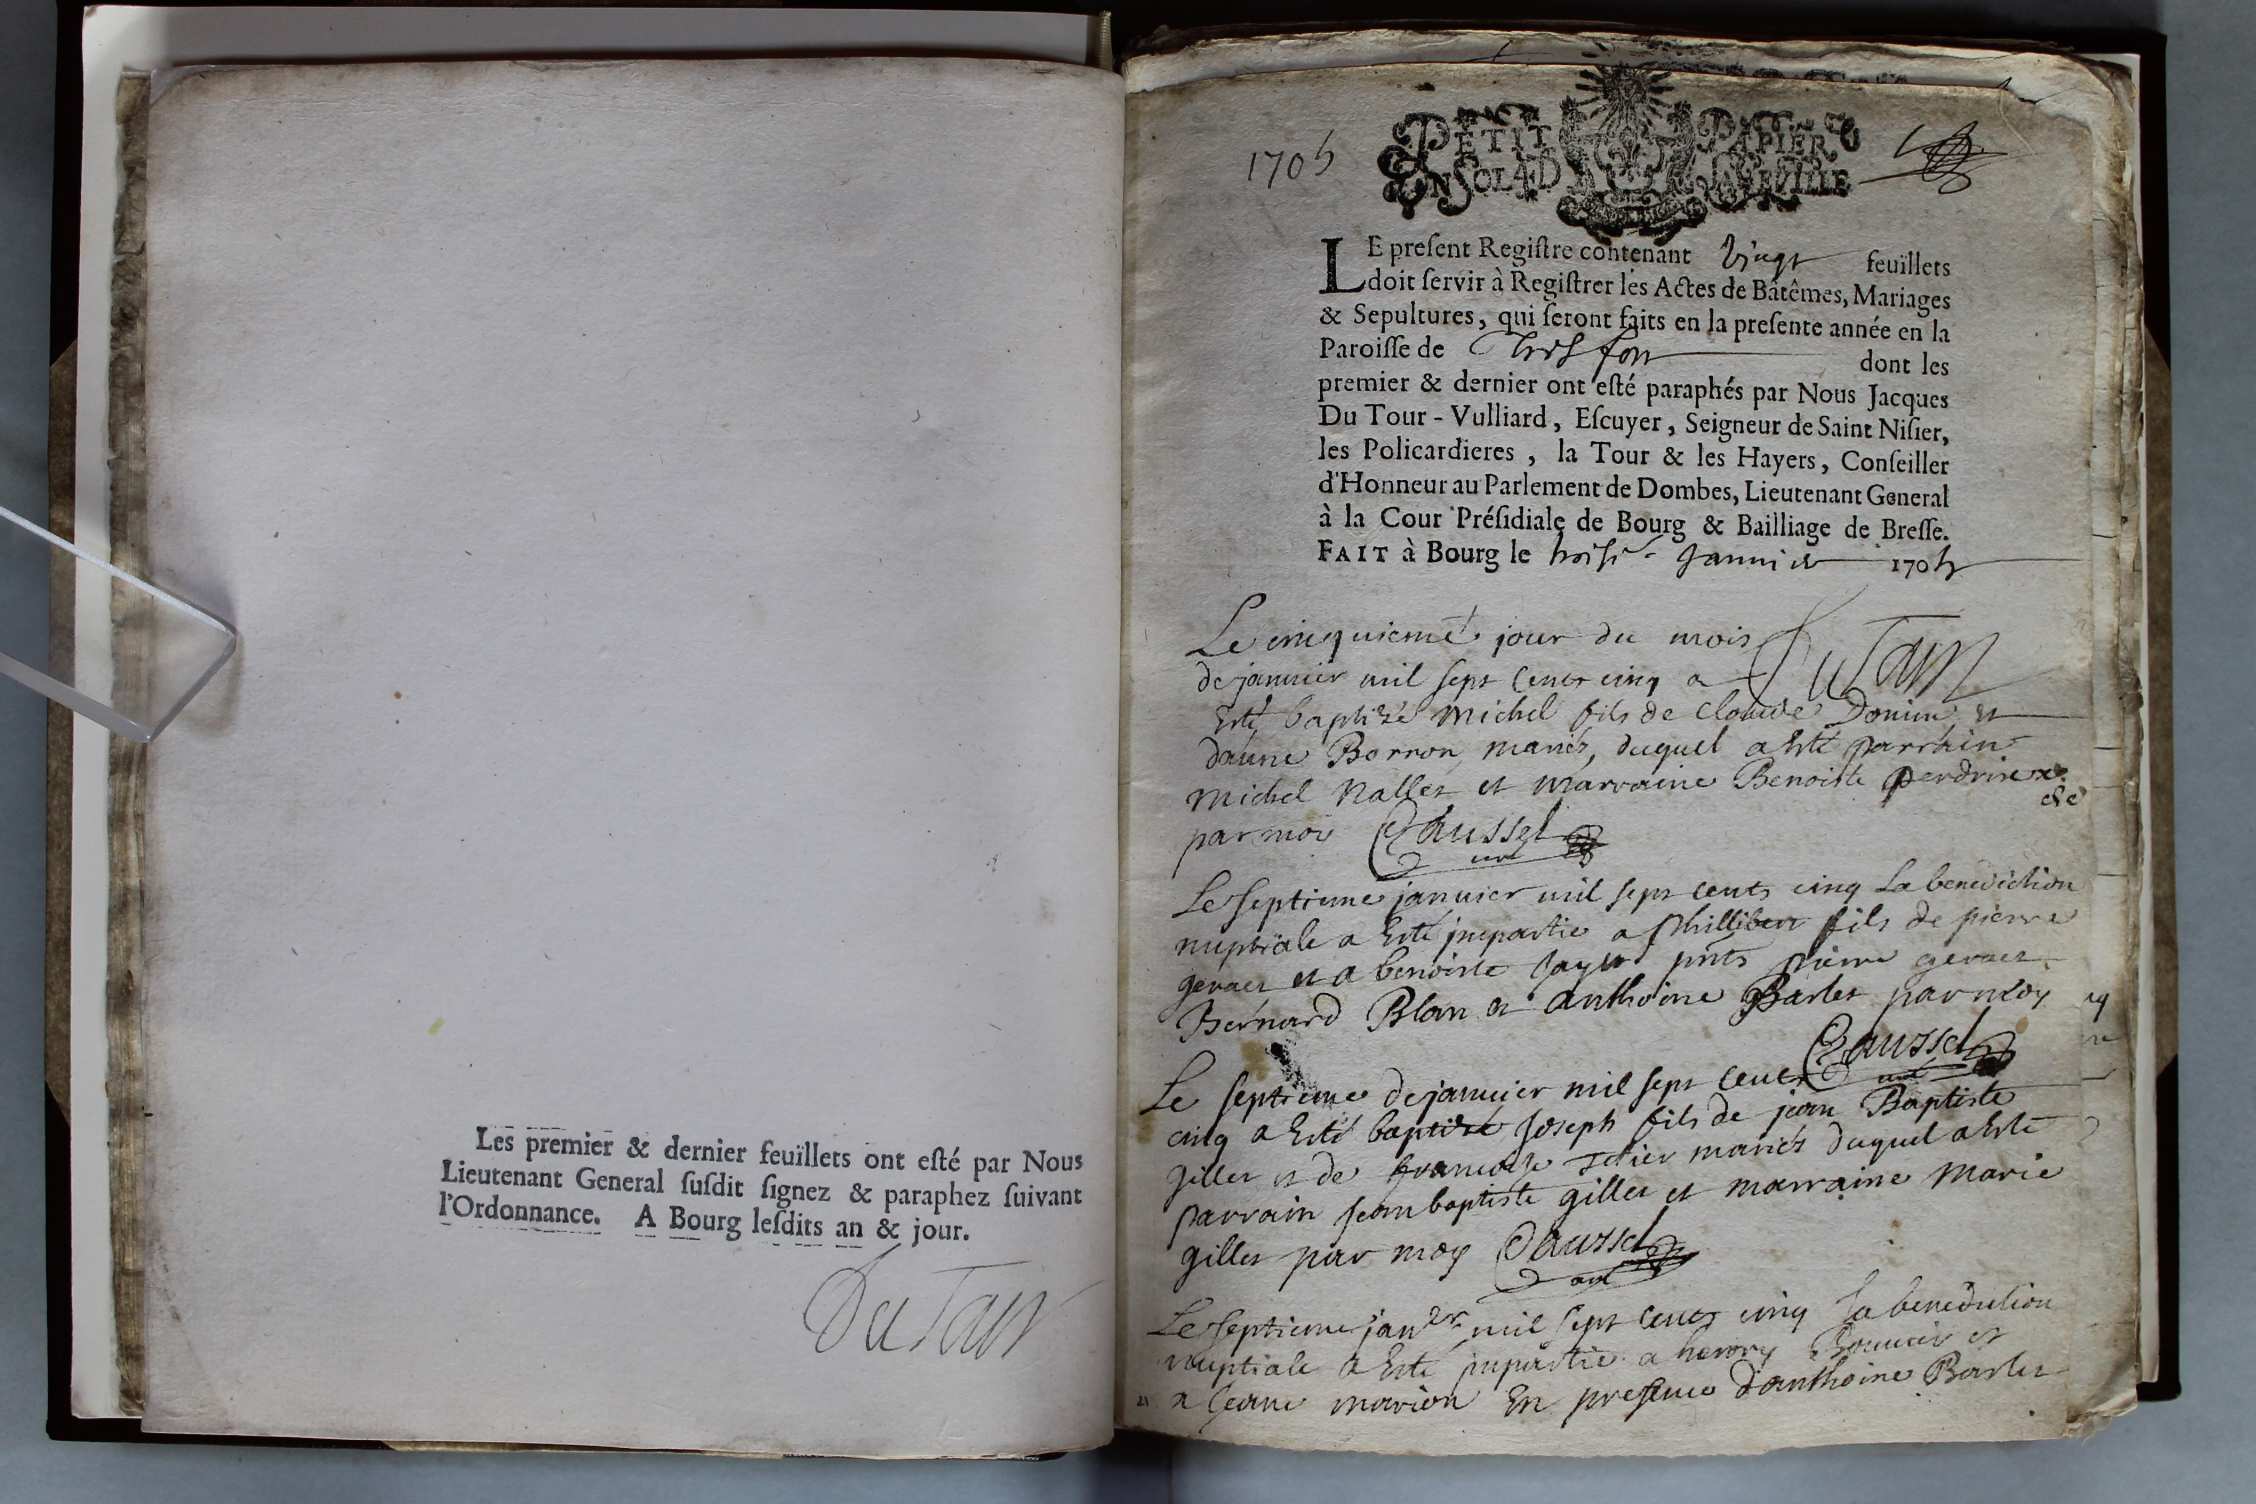 Les premier & dernier feüillets ont esté par Nous
Lieutenant General susdit signez & paraphez suivant
l'Ordonnance. A Bourg lesdits an & jour.
DuTour
1705
PETIT PAPIER
EN SOL 4 D LE FEVILLE
LE present Registre contenant vingt feuillets
doit servir à Registrer les Actes de Bâtêmes, Mariages
& Sepultures, qui seront faits en la presente année en la
Paroisse de dont les
premier & dernier ont esté paraphés par Nous Jacques
Du Tour-Vulliard, Escuyer, Seigneur de Saint Nisier,
les Policardieres, la Tour & les Hayers, Conseiller
d'Honneur au Parlement de Dombes, Lieutenant General
à la Cour Présidiale de Bourg & Bailliage de Bresse.
FAIT à Bourg le janvier 1705
Le cinquieme jour du mois
de janvier mil sept cents cinq a DuTour
Esté baptizé Michel fils de Claude et
d'anne Borron mariés, duquel a Esté parrain
Michel Nallet et marraine Benoiste perdrix
par moy
Le septieme janvier mil sept cents cinq La benediction
nuptiale a Esté jmpartie a philibert fils de pierre
et a benoiste pnts pierre
Bernard Blan et anthoine Barlet par moy
Le septieme de janvier mil sept cents
cinq a Esté baptizé joseph fils de jean Baptiste
gillet et de francoise mariés duquel a Esté
parrain jean baptiste gillet et marraine Marie
gillet par moy
Le septieme janvr mil sept cents cinq la benediction
nuptiale a Esté jmpartie a henry et
a jeane marion En presence d'anthoine Barlet